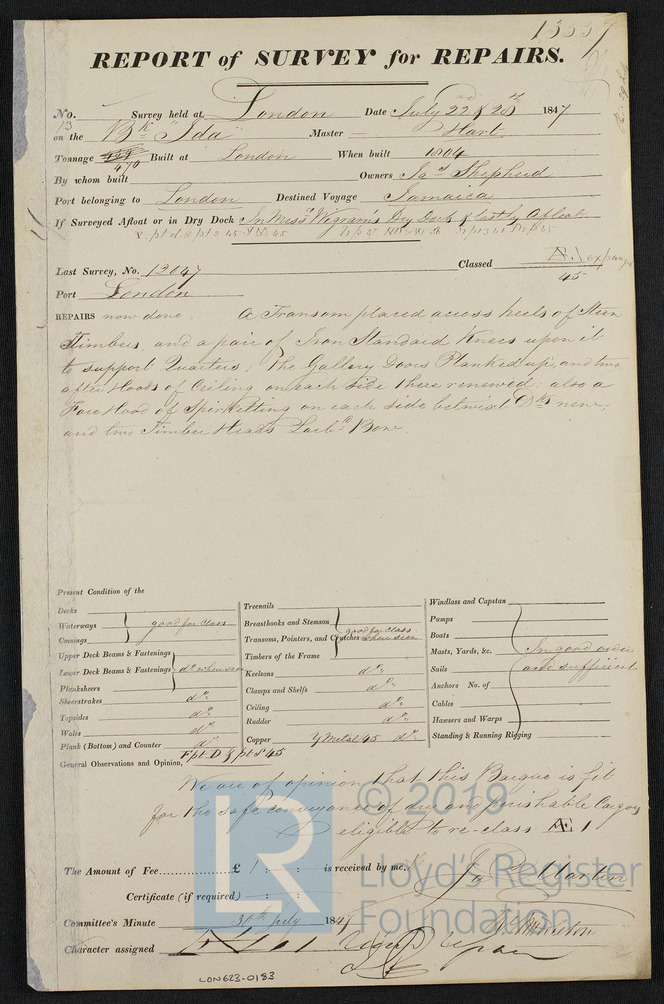 13337
REPORT of SURVEY for REPAIRS.
No. 13 Survey held at London Date July 22nd & 28th 1847
on the Bk "Ida" Master – Hart
Tonnage 470 Built at London When built 1804
By whom built Owners Jas Shepherd
Port belonging to London Destined Voyage Jamaica
If Surveyed Afloat or in Dry Dock In Messrs Wigram's Dry Dock & lastly Afloat
Last Survey, No. 12047 Classed Æ 1
45
Port London
REPAIRS now done. A Transom placed across heels of Stern
Timbers, and a pair of Iron Standard Knees upon it
to support Quarters; The Gallery Doors Planked up, and two
after Hoods of Ceiling on each side there renewed: also a
Fore Hood of Spirketting on each side betwixt Dks new;
and two Timber Heads Larbd Bow.
Present Condition of the
Decks
Waterways good for class
Comings
Upper Deck Beams & Fastenings
Lower Deck Beams & Fastenings do when seen
Planksheers
Sheerstrakes do
Topsides do
Wales do
Plank (Bottom) and Counter do
Treenails
Breasthooks and Stemson good for class
Transoms, Pointers, and Crutches when seen
Timbers of the Frame
Keelsons do
Clamps and Shelfs do
Ceiling do
Rudder do
Copper Y Metal 45 do
Windlass and Capstan
Pumps
Boats
Masts, Yards, &c. In good order
Sails and sufficient
Anchors No. of
Cables
Hawsers and Warps
Standing & Running Rigging
General Observations and Opinion, F pt D & pt S 45
We are of opinion that this Barque is fit
for the safe conveyance of dry and perishable Cargoes
& eligible to re-class Æ 1
The Amount of Fee £ 1 : : is received by me,
Jas Martin
Certificate (if required) : :
Committee's Minute 31st July 1847
Character assigned Æ 1
© 2019
Lloyd's Register
Foundation
LR
LON623-0183